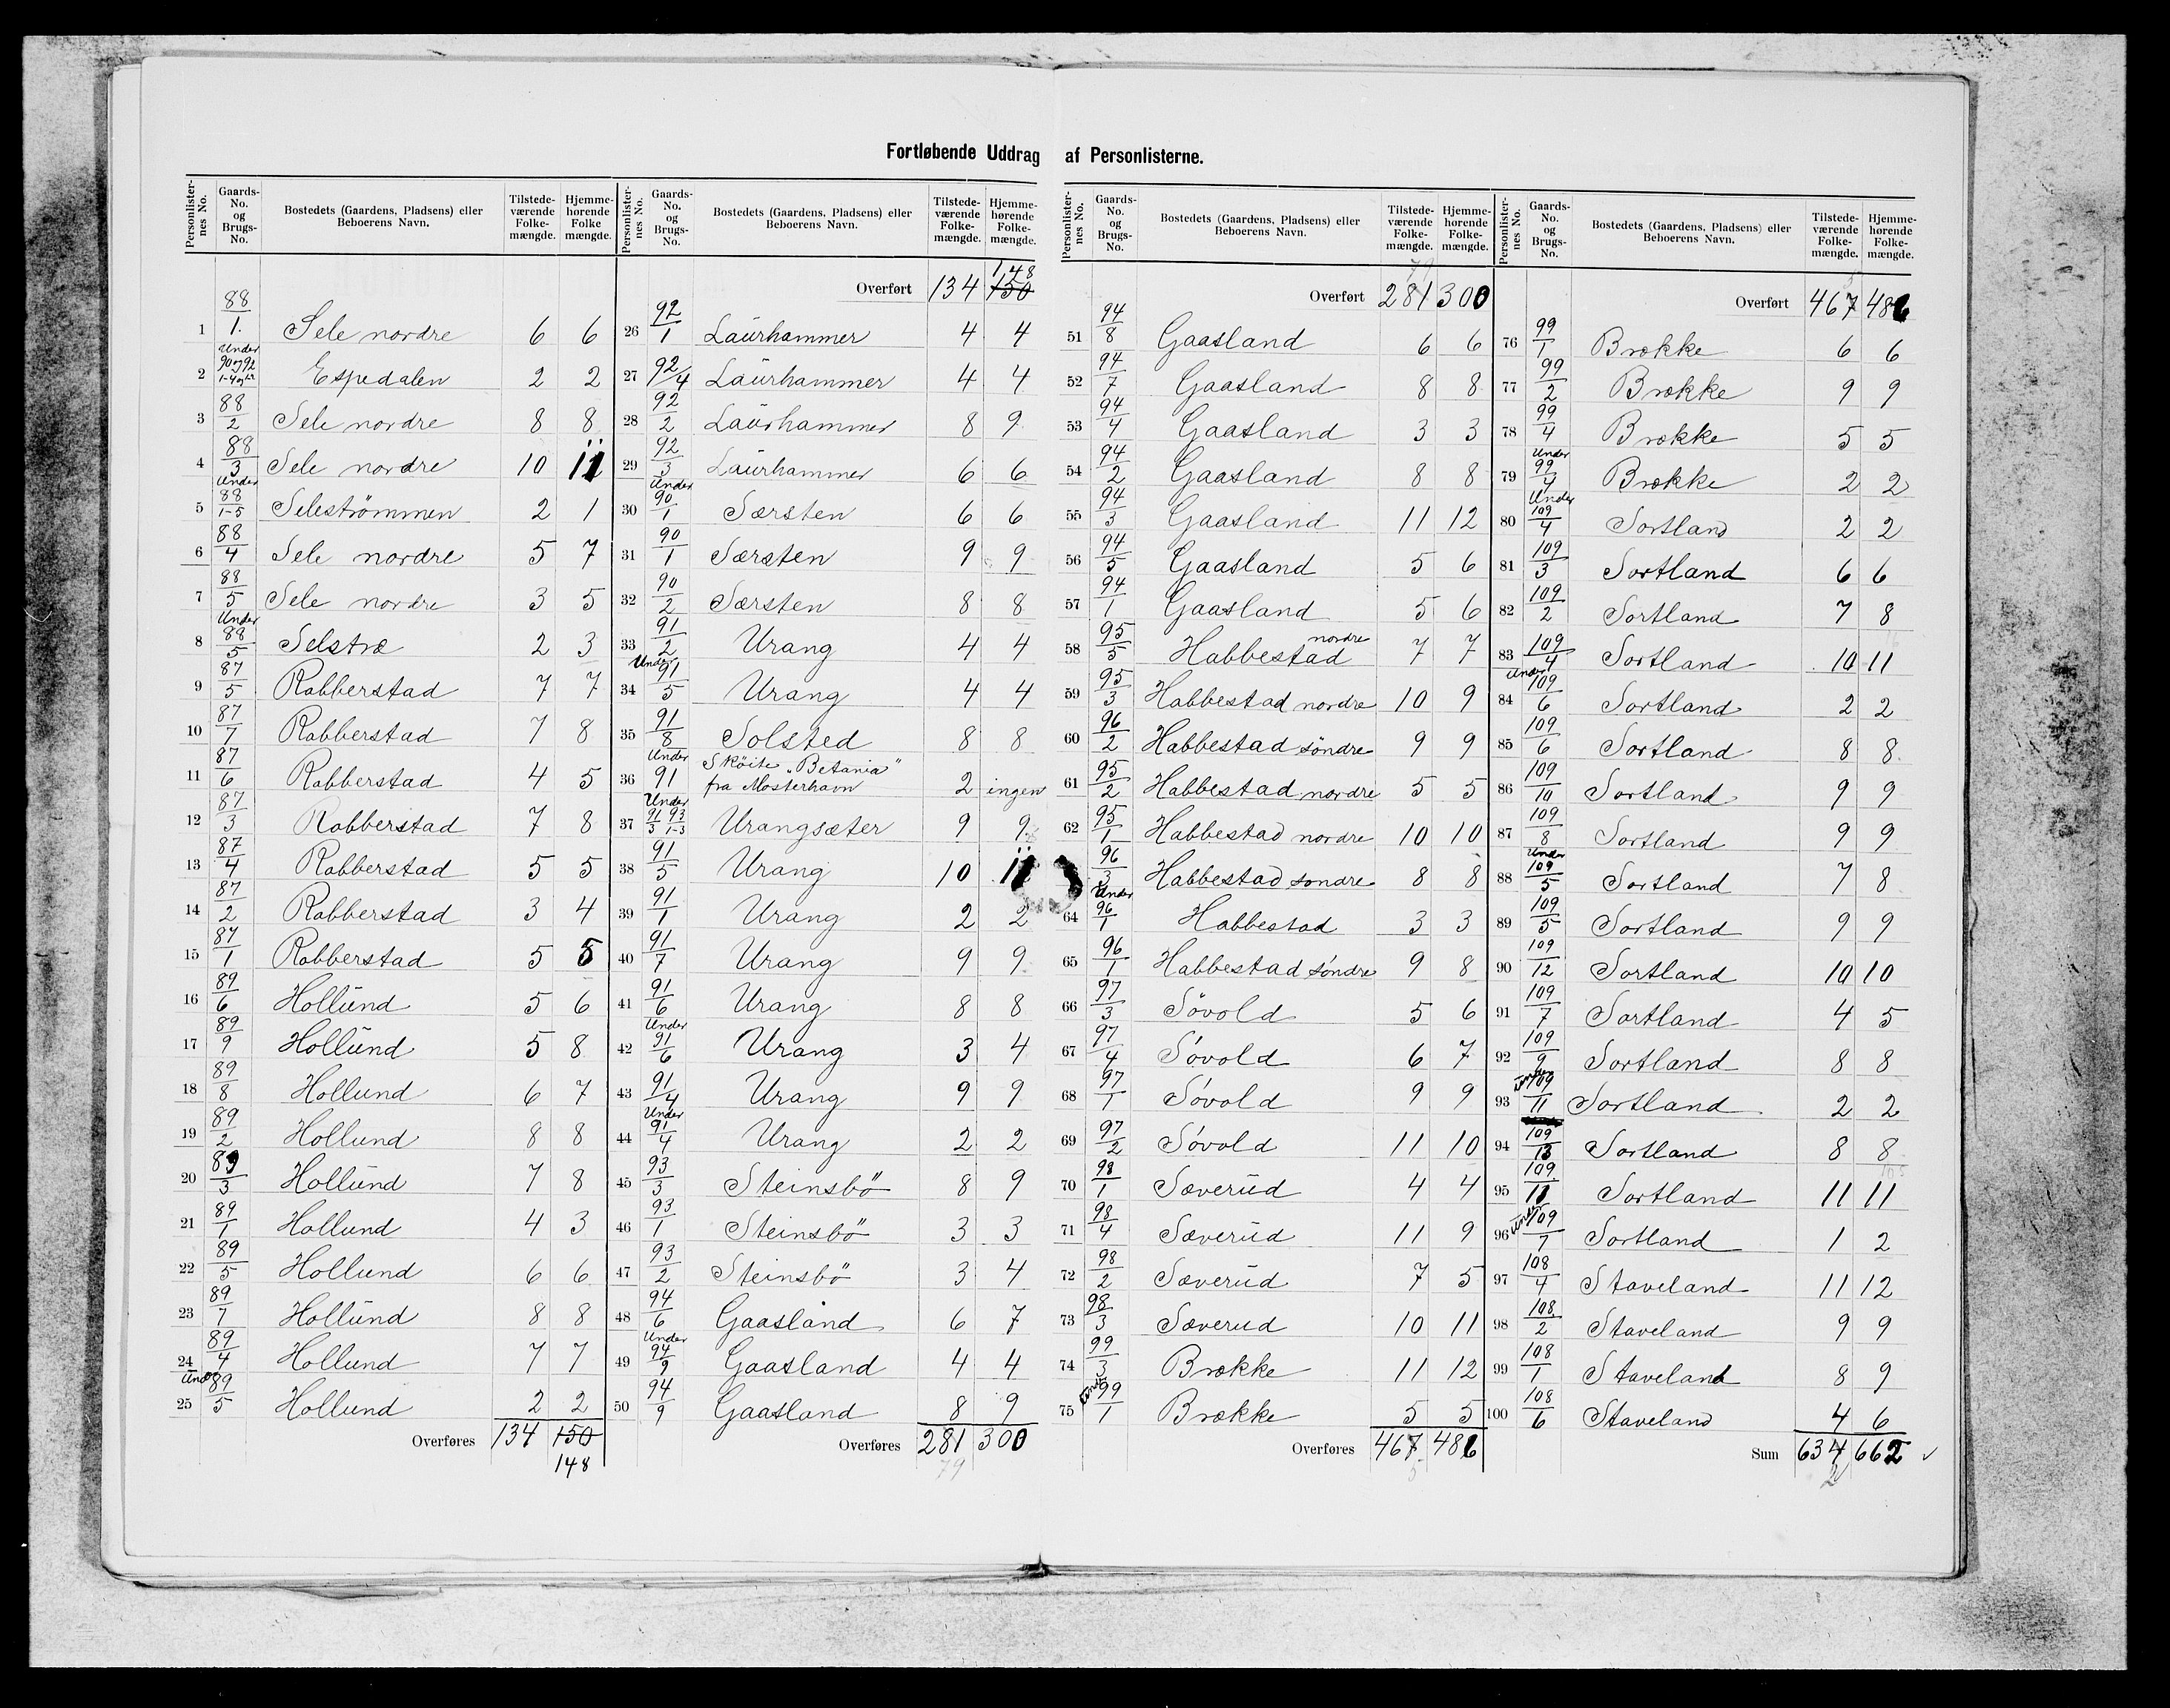 Fortløbende Uddrag af Personlisterne.
Personlister-nes No. | Gaards-No. og Brugs-No. | Bostedets (Gaardens, Pladsens) eller Beboerens Navn. | Tilstede-værende Folke-mængde. | Hjemme-hørende Folke mængde.
1 | 88/1. | Sele nordre | 6 | 6
2 | Under 90 og 92 | Espedalen | 2 | 2
3 | 88/2 | Sele nordre | 8 | 8
4 | 88/3 | Sele nordre | 10 | 11
5 | Under 88/1-5 | Seleströmmen | 2 | 1
6 | 88/4 | Sele nordre | 5 | 7
7 | 88/5 | Sele nordre | 3 | 5
8 | Under 88/5 | Selstræ | 2 | 3
9 | 87/5 | Rabberstad | 7 | 7
10 | 87/7 | Rabberstad | 7 | 8
11 | 87/6 | Rabberstad | 4 | 5
12 | 87/3 | Rabberstad | 7 | 8
13 | 87/4 | Rabberstad | 5 | 5
14 | 87/2 | Rabberstad | 3 | 4
15 | 87/1 | Rabberstad | 5 | 5
16 | 89/6 | Hollund | 5 | 6
17 | 89/9 | Hollund | 5 | 8
18 | 89/8 | Hollund | 6 | 7
19 | 89/2 | Hollund | 8 | 8
20 | 89/3 | Hollund | 7 | 8
21 | 89/1 | Hollund | 4 | 3
22 | 89/5 | Hollund | 6 | 6
23 | 89/7 | Hollund | 8 | 8
24 | 89/4 | Hollund | 7 | 7
25 | Under 89/5 | Hollund | 2 | 2
Overføres | 134 | 150
148
Personlister-nes No. | Gaards-No. og Brugs-No. | Bostedets (Gaardens, Pladsens) eller Beboerens Navn. | Tilstede-værende Folke-mængde. | Hjemme-hørende Folke-mængde.
148
Overført | 134 | 150
26 | 92/1 | Laurhammer | 4 | 4
27 | 92/4 | Laurhammer | 4 | 4
28 | 92/2 | Laurhammer | 8 | 9
29 | 92/3 | Laurhammer | 6 | 6
30 | Under 90/1 | Særsten | 6 | 6
31 | 90/1 | Særsten | 9 | 9
32 | 90/2 | Særsten | 8 | 8
33 | 91/2 | Urang | 4 | 4
34 | Under 91/5 | Urang | 4 | 4
35 | 91/8 | Solsted | 8 | 8
36 | Under 91 | Sköite "Betania" fra Mosterhavn | 2 | ingen
37 | Under 91/3 93/1-3 | Urangsæter | 9 | 9
38 | 91/5 | Urang | 10 | 11
39 | 91/1 | Urang | 2 | 2
40 | 91/7 | Urang | 9 | 9
41 | 91/6 | Urang | 8 | 8
42 | Under 91/6 | Urang | 3 | 4
43 | 91/4 | Urang | 9 | 9
44 | Under 91/4 | Urang | 2 | 2
45 | 93/3 | Steinsbö | 8 | 9
46 | 93/1 | Steinsbö | 3 | 3
47 | 93/2 | Steinsbö | 3 | 4
48 | 94/6 | Gaasland | 6 | 7
49 | Under 94/9 | Gaasland | 4 | 4
50 | 94/9 | Gaasland | 8 | 9
Overføres | 281 | 300
79
Personlister-nes No. | Gaards-No. og Brugs-No. | Bostedets (Gaardens, Pladsens) eller Beboerens Navn. | Tilstede-værende Folke-mængde. | Hjemme-hørende Folke-mængde.
79
Overført | 281 | 300
51 | 94/8 | Gaasland | 6 | 6
52 | 94/7 | Gaasland | 8 | 8
53 | 94/4 | Gaasland | 3 | 3
54 | 94/2 | Gaasland | 8 | 8
55 | 94/3 | Gaasland | 11 | 12
56 | 94/5 | Gaasland | 5 | 6
57 | 94/1 | Gaasland | 5 | 6
58 | 95/5 | Habbestad nordre | 7 | 7
59 | 95/3 | Habbestad nordre | 10 | 9
60 | 96/2 | Habbestad söndre | 9 | 9
61 | 95/2 | Habbestad nordre | 5 | 5
62 | 95/1 | Habbestad nordre | 10 | 10
96/3 | Habbestad sondre | 8 | 8
64 | Under 96/1 | Habbestad | 3 | 3
65 | 96/1 | Habbestad söndre | 9 | 8
66 | 97/3 | Sövold | 5 | 6
67 | 97/4 | Sövold | 6 | 7
68 | 97/1 | Sövold | 9 | 9
69 | 97/2 | Sövold | 11 | 10
70 | 98/1 | Sæverud | 4 | 4
71 | 98/4 | Sæverud | 11 | 9
72 | 98/2 | Sæverud | 7 | 5
73 | 98/3 | Sæverud | 10 | 11
74 | 99/3 | Brække | 11 | 12
75 | Under 99/1 | Brække | 5 | 5
Overføres | 467 | 486
5
Personlister-nes No. | Gaards-No. og Brugs-No. | Bostedets (Gaardens, Pladsens) eller Beboerens Navn. | Tilstede-værende Folke-mængde. | Hjemme-hørende Folke-mængde.
5
Overført | 467 | 486
76 | 99/1 | Brække | 6 | 6
77 | 99/2 | Brække | 9 | 9
78 | 99/4 | Brække | 5 | 5
79 | Under 99/4 | Brække | 2 | 2
80 | Under 109/4 | Sortland | 2 | 2
81 | 109/3 | Sortland | 6 | 6
82 | 109/2 | Sortland | 7 | 8
83 | 109/4 | Sortland | 10 | 11
84 | Under 109/6 | Sortland | 2 | 2
85 | 109/6 | Sortland | 8 | 8
86 | 109/10 | Sortland | 9 | 9
87 | 109/8 | Sortland | 9 | 9
88 | Under 109/5 | Sortland | 7 | 8
89 | 109/5 | Sortland | 9 | 9
90 | 109/12 | Sortland | 10 | 10
91 | 109/7 | Sortland | 4 | 5
92 | 109/9 | Sortland | 8 | 8
93 | Under 109/11 | Sortland | 2 | 2
94 | 109/13 | Sortland | 8 | 8
95 | 109/11 | Sortland | 11 | 11
96 | Under 109/7 | Sortland | 1 | 2
97 | 108/4 | Staveland | 11 | 12
98 | 108/2 | Staveland | 9 | 9
99 | 108/1 | Staveland | 8 | 9
100 | 108/6 | Staveland | 4 | 6
Sum | 634 | 662
2